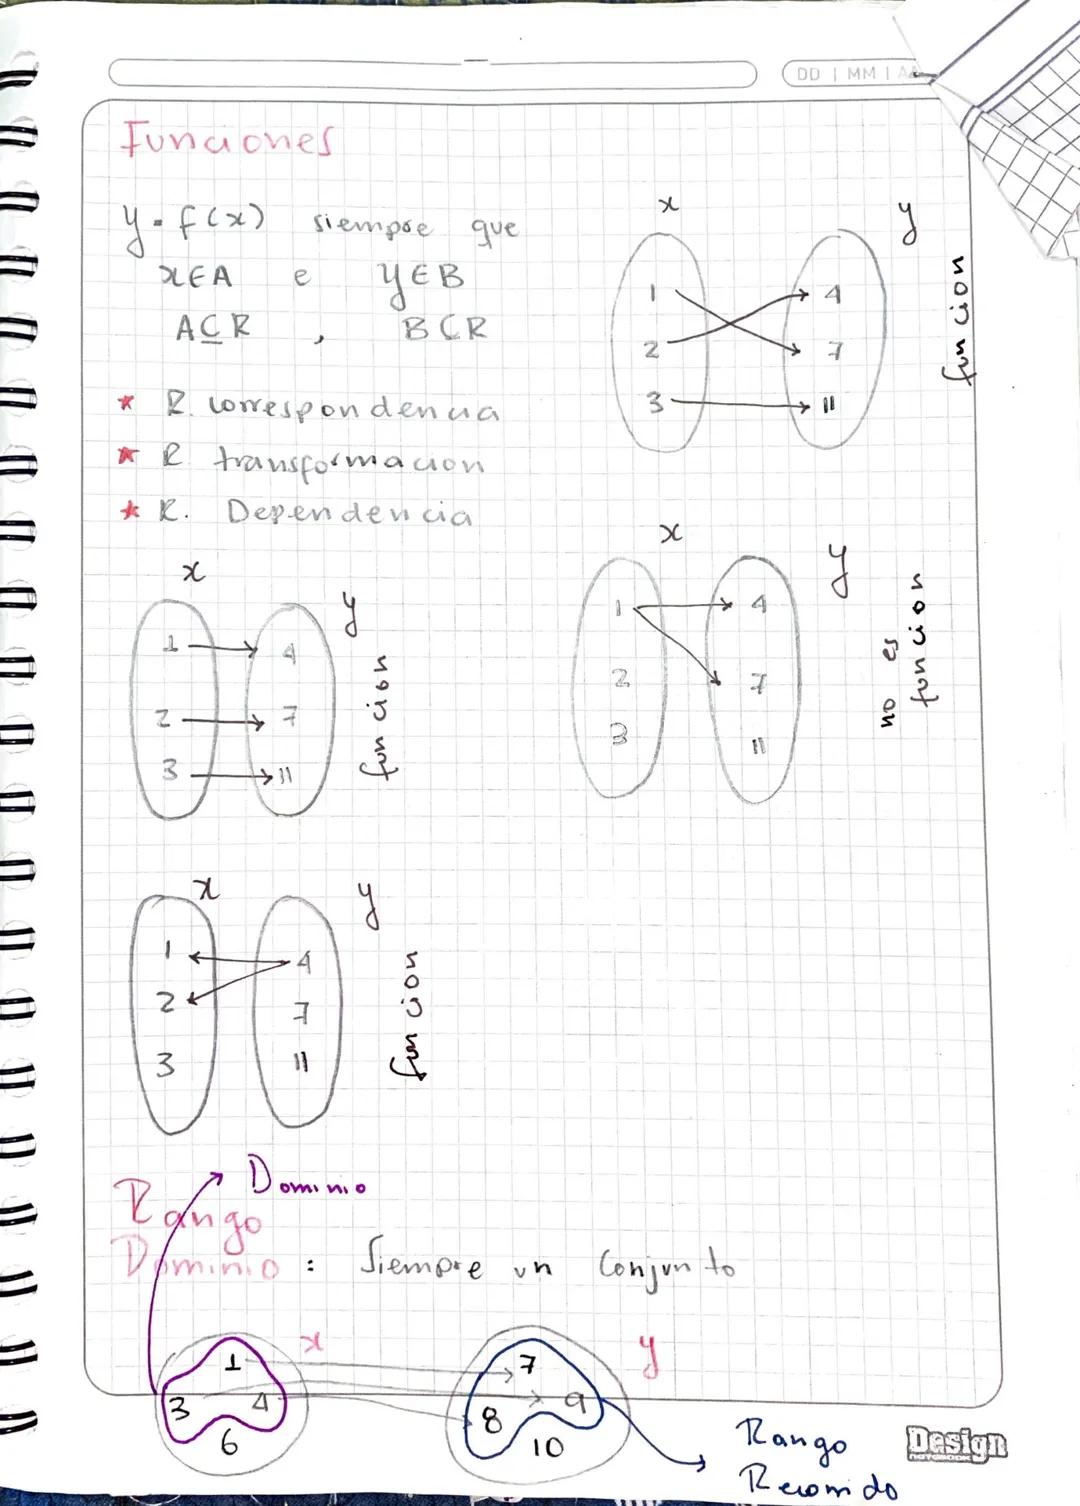 DD | MM | AA
Funciones
y = f(x) siempre que
x∈A e y∈B
A⊆R , B⊆R
* R. correspondencia
* R. transformacion
* R. Dependencia
x y
1 4
2 7
3 11
funcion
x y
1 4
2 7
3 11
funcion
x y
1 4
2 7
3 11
no es
funcion
x y
1 4
2 7
3 11
funcion
Dominio
Rango
Dominio : Siempre un Conjunto
x y
1 7
3 4 8 9
6 10
Rango
Recorrido
Design
NOTEBOOK